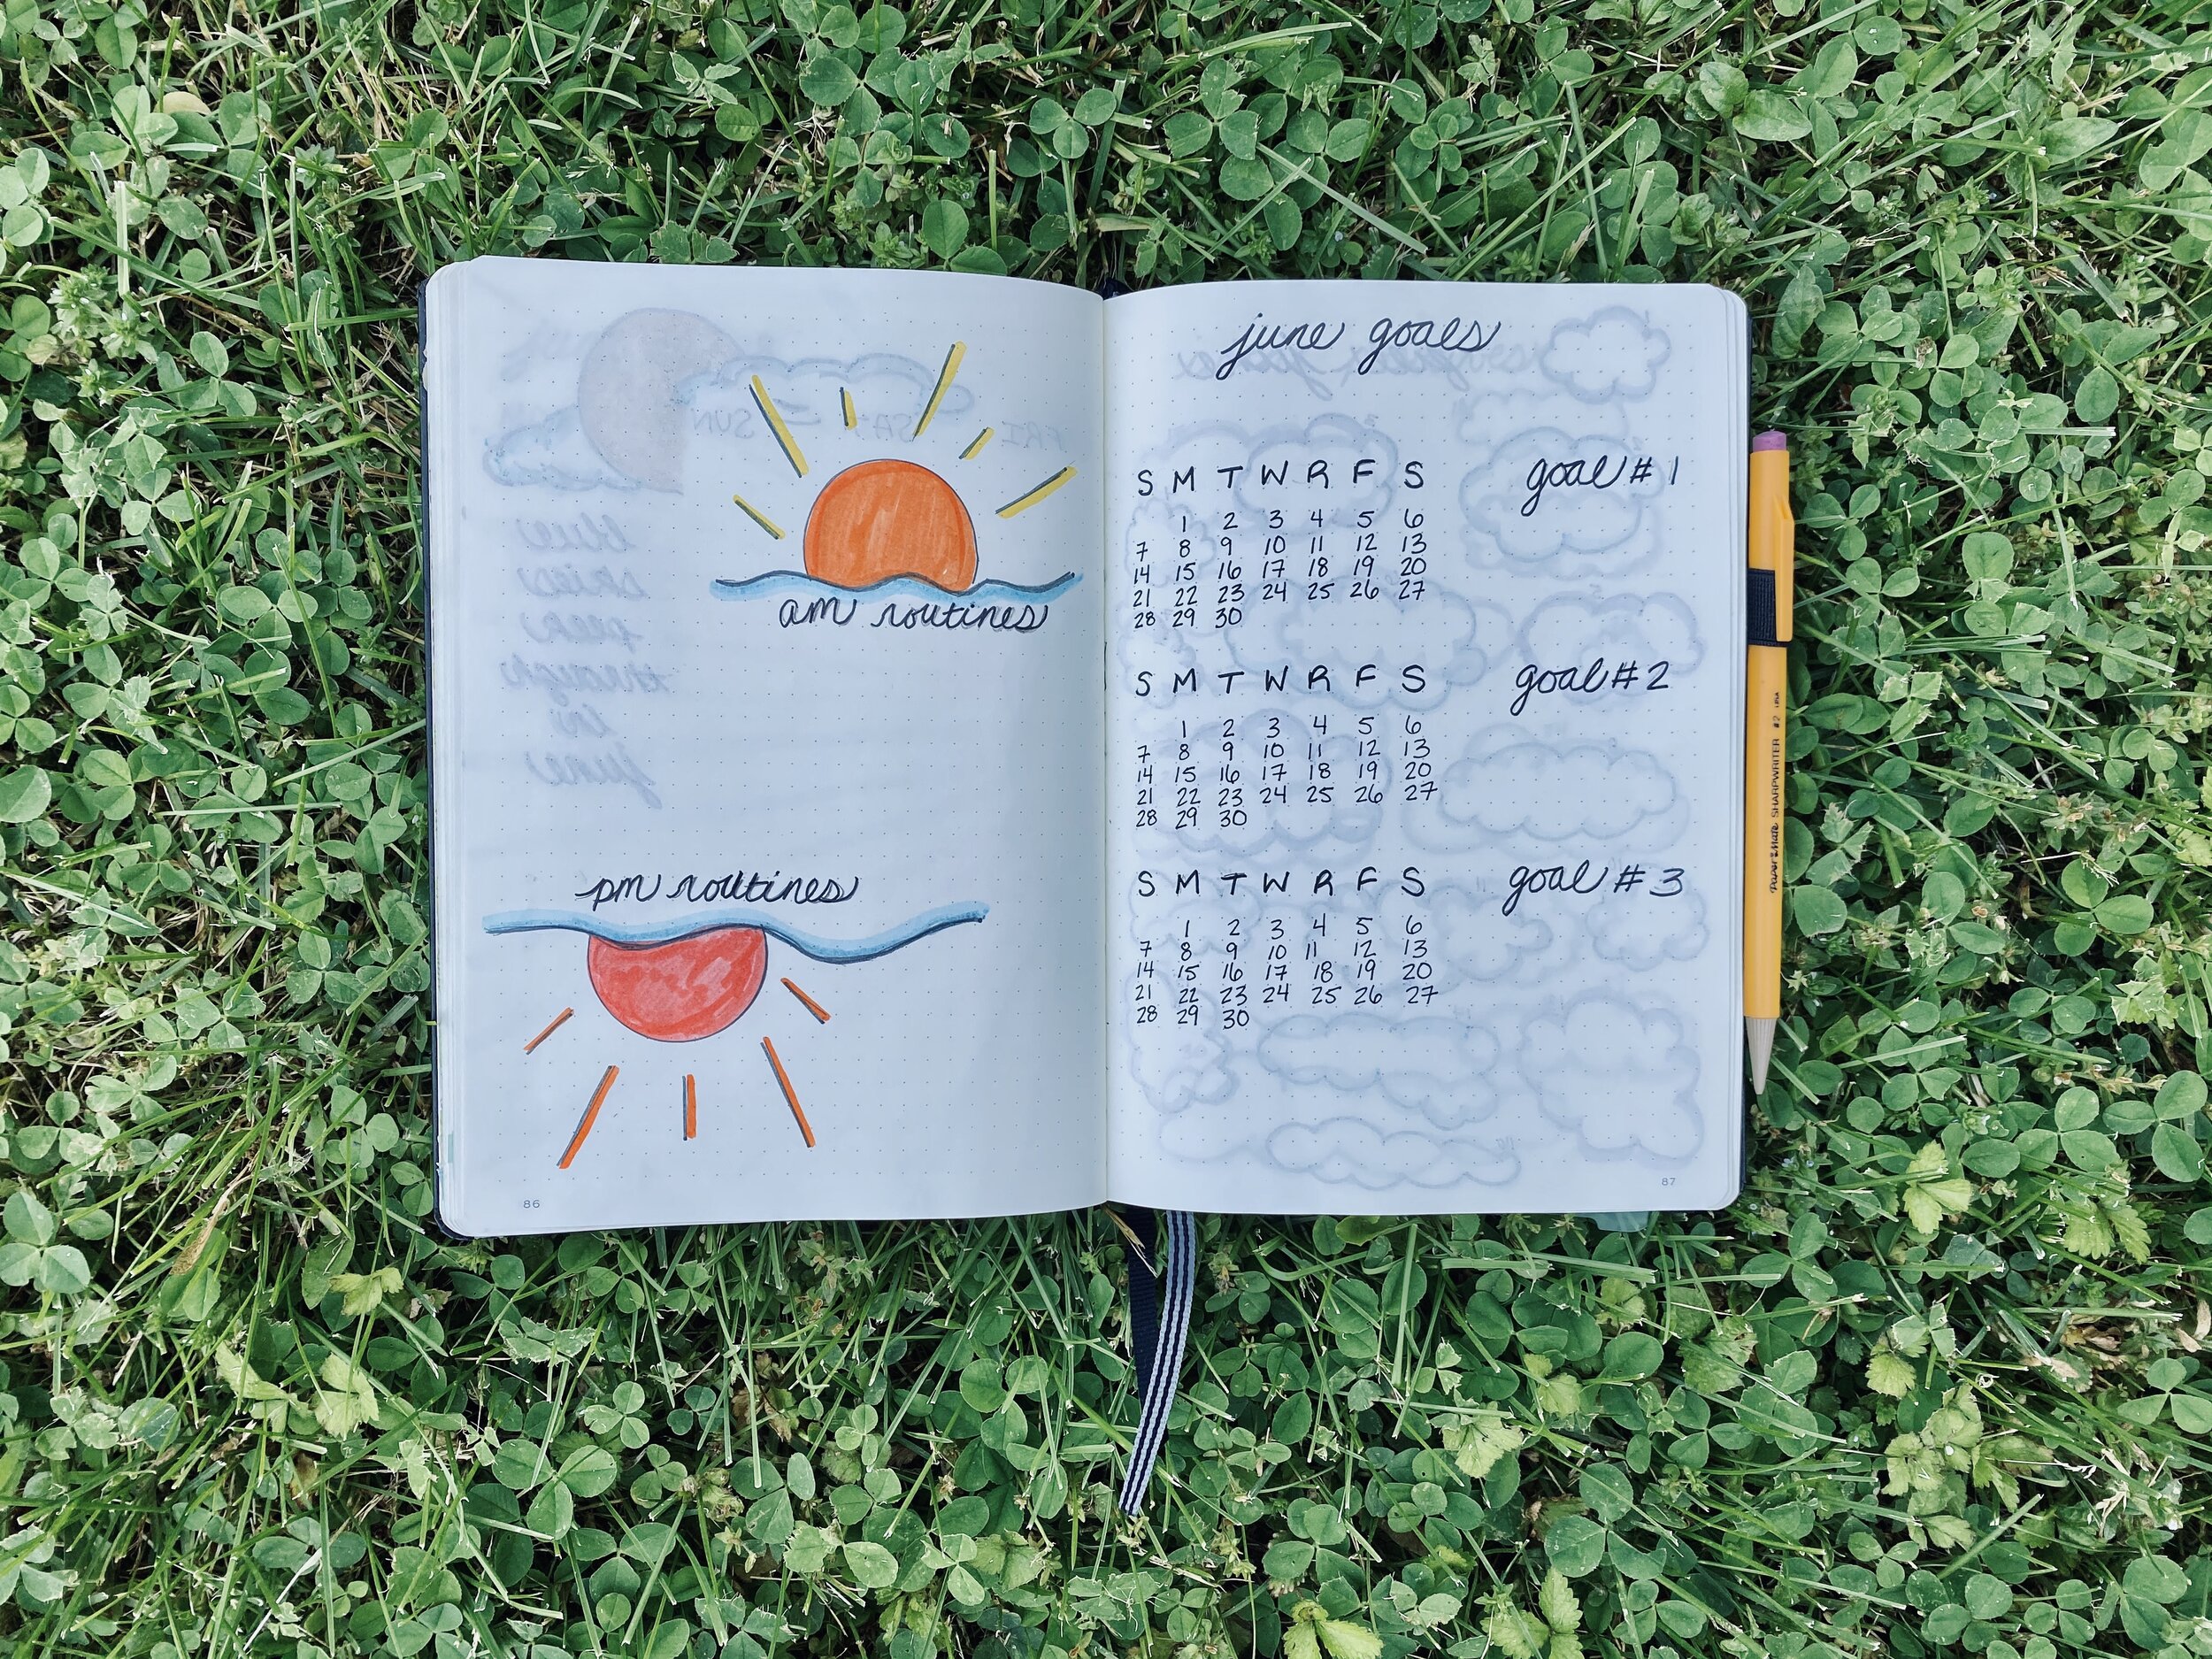 am routines
pm routines
86
june goals
S M T W R F S
1 2 3 4 5 6
7 8 9 10 11 12 13
14 15 16 17 18 19 20
21 22 23 24 25 26 27
28 29 30
goal # 1
S M T W R F S
1 2 3 4 5 6
7 8 9 10 11 12 13
14 15 16 17 18 19 20
21 22 23 24 25 26 27
28 29 30
goal # 2
S M T W R F S
1 2 3 4 5 6
7 8 9 10 11 12 13
14 15 16 17 18 19 20
21 22 23 24 25 26 27
28 29 30
goal # 3
87
Paper Mate SHARPWRITER #2 USA
FRI SAT SUN
blue
skies
peek
through
in
june